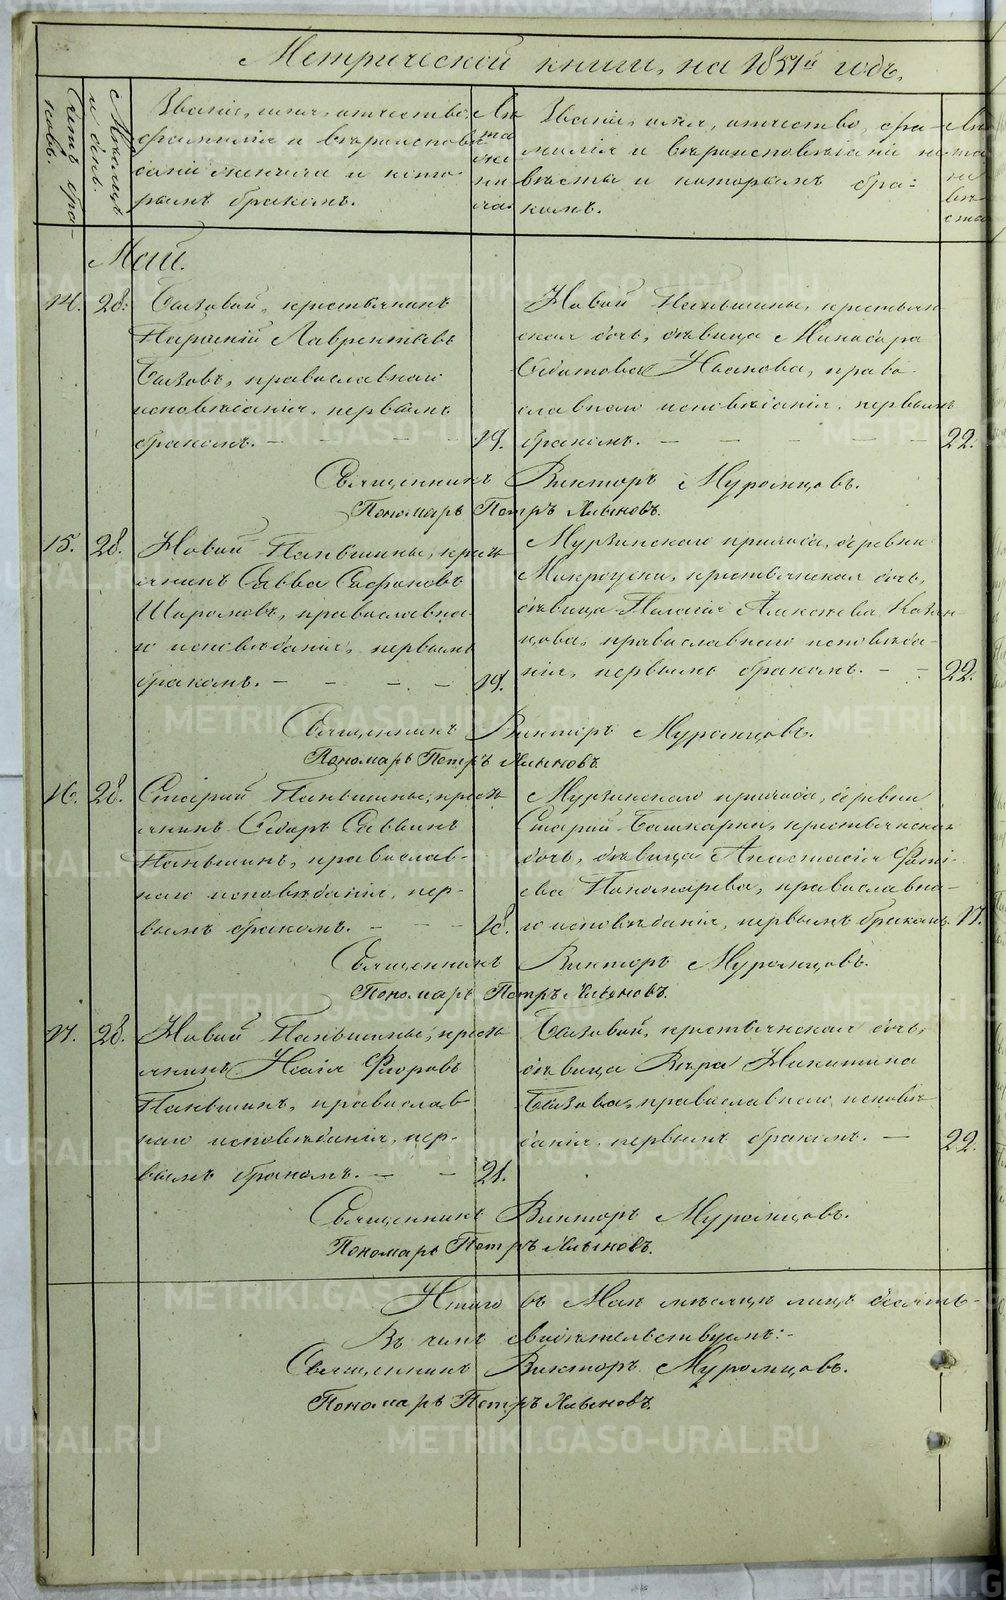 Метрической книги, на 1857й годъ.
Счетъ бра-
ковъ.
Мѣсяцъ
и день.
Званіе, имя, отчество,
фамилія и вѣроисповѣ
даніе жениха и кото-
рымъ бракомъ.
Лѣ
та
же
ни
ха.
Званіе, имя, отчество, фа-
милія и вѣроисповѣданіе не
вѣсты и которымъ бра:
комъ.
Лѣ
та
не
вѣ
сты
Май.
14. 28. крестьянинъ
Лаврентьевъ
православнаго
исповѣданія, первымъ
бракомъ. — 19.
Новой Паньшины, крестьян
ская дочь, дѣвица Минодора
Иванова, право-
славнаго исповѣданія, первымъ
бракомъ. — 22.
Священникъ Викторъ Муромцовъ.
Пономарь Петръ Хлыновъ.
15. 28. Новой Паньшины, кресть
янинъ Савва Сафоновъ
православна-
го исповѣданія, первымъ
бракомъ. — 19.
Мурзинскаго прихода, деревни
Мокроуски, крестьянская дочь,
дѣвица Пелагія Алексѣева Казан
цова, православнаго исповѣда-
нія, первымъ бракомъ. — 22.
Священникъ Викторъ Муромцовъ.
Пономарь Петръ Хлыновъ.
16. 28. Старой Паньшины, кресть
янинъ Саввинъ
Паньшинъ, православ-
наго исповѣданія, пер-
вымъ бракомъ. — 18.
Мурзинскаго прихода, деревни
Старой Башкарки, крестьянская
дочь, дѣвица Анастасія Фоті-
ева Пономарева, православна-
го исповѣданія, первымъ бракомъ. 17.
Священникъ Викторъ Муромцовъ.
Пономарь Петръ Хлыновъ.
17. 28. Новой Паньшины, кресть
янинъ Исаія Флоровъ
Паньшинъ, православ
наго исповѣданія, пер-
вымъ бракомъ. — 21.
крестьянская дочь,
дѣвица Вѣра Никитина
православнаго исповѣ
данія, первымъ бракомъ. — 22.
Священникъ Викторъ Муромцовъ.
Пономарь Петръ Хлыновъ.
Итого въ Маѣ мѣсяцѣ лицъ десять.
Въ чемъ свидѣтельствуемъ:-
Священникъ Викторъ Муромцовъ.
Пономарь Петръ Хлыновъ.
METRIKI.GASO-URAL.RU